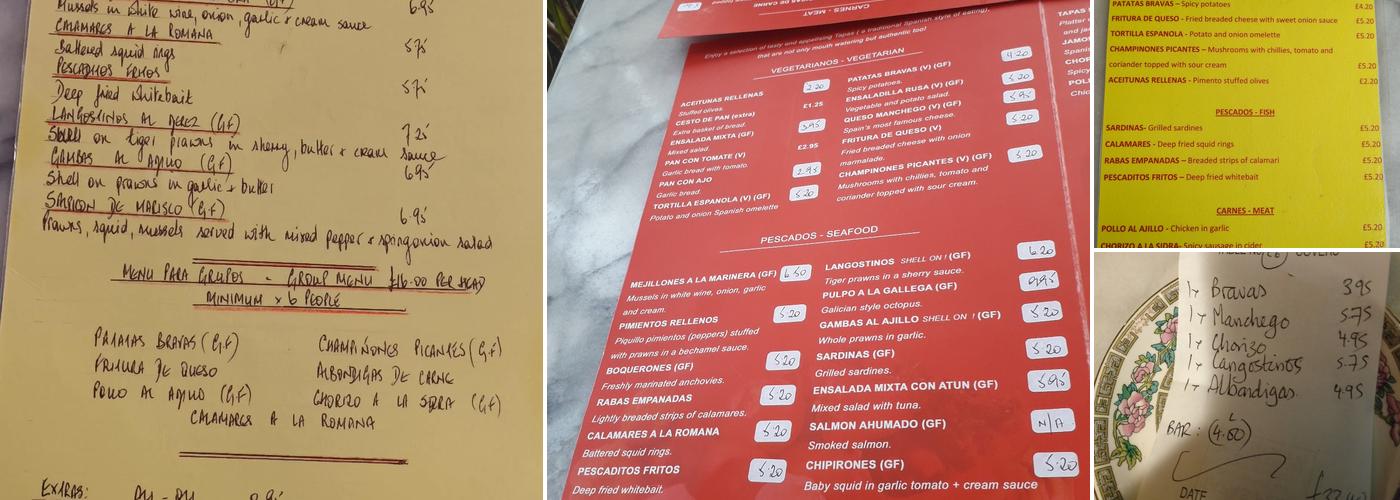 Mussels in white wine, onion, garlic + cream sauce 6.95
CALAMARES A LA ROMANA
Battered squid rings 5.75
PESCADITOS FRITOS
Deep fried whitebait 5.75
LANGOSTINOS AL JEREZ (G.F)
Shell on tiger prawns in sherry, butter + cream sauce 7.25
GAMBAS AL AJILLO (G.F) 6.95
Shell on prawns in garlic + butter
SALPICON DE MARISCO (G.F)
Prawns, squid, mussels served with mixed pepper + spring onion salad 6.95
MENU PARA GRUPOS - GROUP MENU £16.00 PER HEAD
MINIMUM x 6 PEOPLE
PATATAS BRAVAS (G.F) CHAMPIÑONES PICANTES (G.F)
FRITURA DE QUESO ALBONDIGAS DE CARNE
POLLO AL AJILLO (G.F) CHORIZO A LA SIDRA (G.F)
CALAMARES A LA ROMANA
EXTRAS:
CARNES - MEAT
Enjoy a selection of tasty and appetising Tapas ( a traditional Spanish style of eating),
that are not only mouth watering but authentic too!
VEGETARIANOS - VEGETARIAN
ACEITUNAS RELLENAS 2.20
Stuffed olives.
CESTO DE PAN (extra) £1.25
Extra basket of bread.
ENSALADA MIXTA (GF) 3.95
Mixed salad.
PAN CON TOMATE (V) £2.95
Garlic bread with tomato.
PAN CON AJO 2.95
Garlic bread.
TORTILLA ESPANOLA (V) (GF) 5.20
Potato and onion Spanish omelette
PATATAS BRAVAS (V) (GF) 4.20
Spicy potatoes.
ENSALADILLA RUSA (V) (GF) 5.20
Vegetable and potato salad.
QUESO MANCHEGO (V) (GF) 5.95
Spain's most famous cheese.
FRITURA DE QUESO (V) 5.20
Fried breaded cheese with onion
marmalade.
CHAMPINONES PICANTES (V) (GF) 5.20
Mushrooms with chillies, tomato and
coriander topped with sour cream.
PESCADOS - SEAFOOD
MEJILLONES A LA MARINERA (GF) 6.50
Mussels in white wine, onion, garlic
and cream.
PIMIENTOS RELLENOS 5.20
Piquillo pimientos (peppers) stuffed
with prawns in a bechamel sauce.
BOQUERONES (GF) 5.20
Freshly marinated anchovies.
RABAS EMPANADAS 5.20
Lightly breaded strips of calamares.
CALAMARES A LA ROMANA 5.20
Battered squid rings.
PESCADITOS FRITOS 5.20
Deep fried whitebait.
LANGOSTINOS SHELL ON ! (GF) 6.20
Tiger prawns in a sherry sauce.
PULPO A LA GALLEGA (GF) 9.95
Galician style octopus.
GAMBAS AL AJILLO SHELL ON ! (GF) 5.20
Whole prawns in garlic.
SARDINAS (GF) 5.20
Grilled sardines.
ENSALADA MIXTA CON ATUN (GF) 5.95
Mixed salad with tuna.
SALMON AHUMADO (GF) N/A
Smoked salmon.
CHIPIRONES (GF) 5.20
Baby squid in garlic tomato + cream sauce
TAPAS
Platter
PATATAS BRAVAS – Spicy potatoes £4.20
FRITURA DE QUESO - Fried breaded cheese with sweet onion sauce £5.20
TORTILLA ESPANOLA - Potato and onion omelette £5.20
CHAMPINONES PICANTES – Mushrooms with chillies, tomato and
coriander topped with sour cream £5.20
ACEITUNAS RELLENAS - Pimento stuffed olives £2.20
PESCADOS - FISH
SARDINAS- Grilled sardines £5.20
CALAMARES - Deep fried squid rings £5.20
RABAS EMPANADAS – Breaded strips of calamari £5.20
PESCADITOS FRITOS – Deep fried whitebait £5.20
CARNES - MEAT
POLLO AL AJILLO - Chicken in garlic £5.20
CHORIZO A LA SIDRA- Spicy sausage in cider £5.20
1 x Bravas 3.95
1 x Manchego 5.75
1 x Chorizo 4.95
1 x Langostinos 5.75
1 x Albondigas 4.95
BAR: (4.60)
DATE